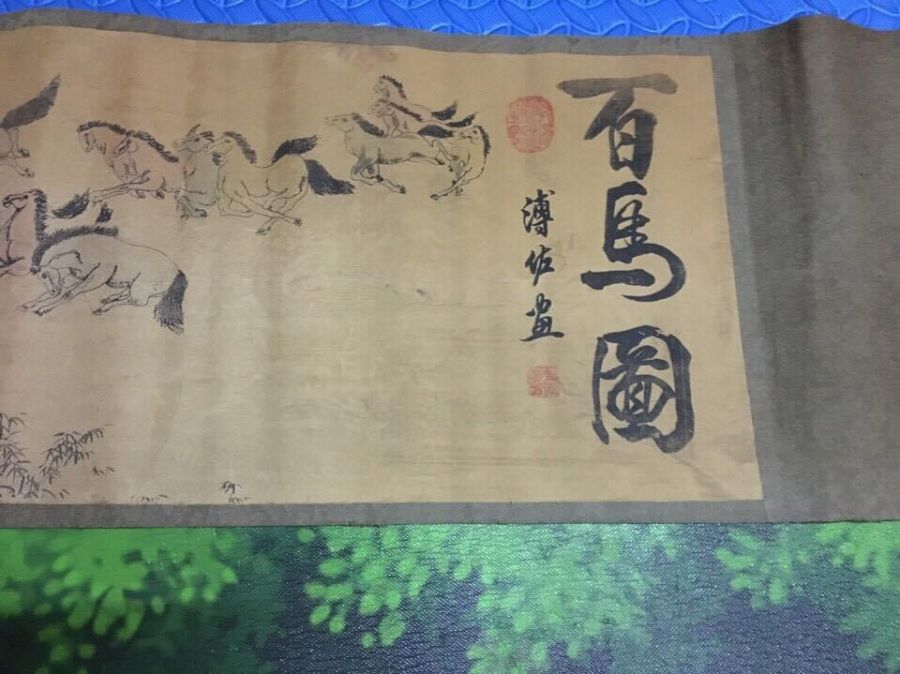 百馬圖
溥佐画